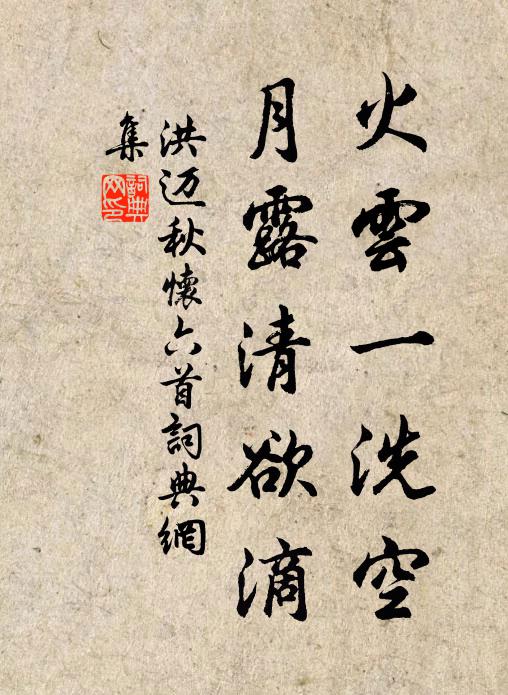 火雲一洗空
月露清欲滴
洪迈秋懷六首詞典網
集
詞典
网印